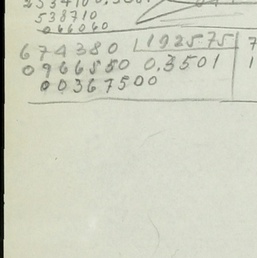 538710
066060
674380 192575 7
0966550 0.3501 1
00367500